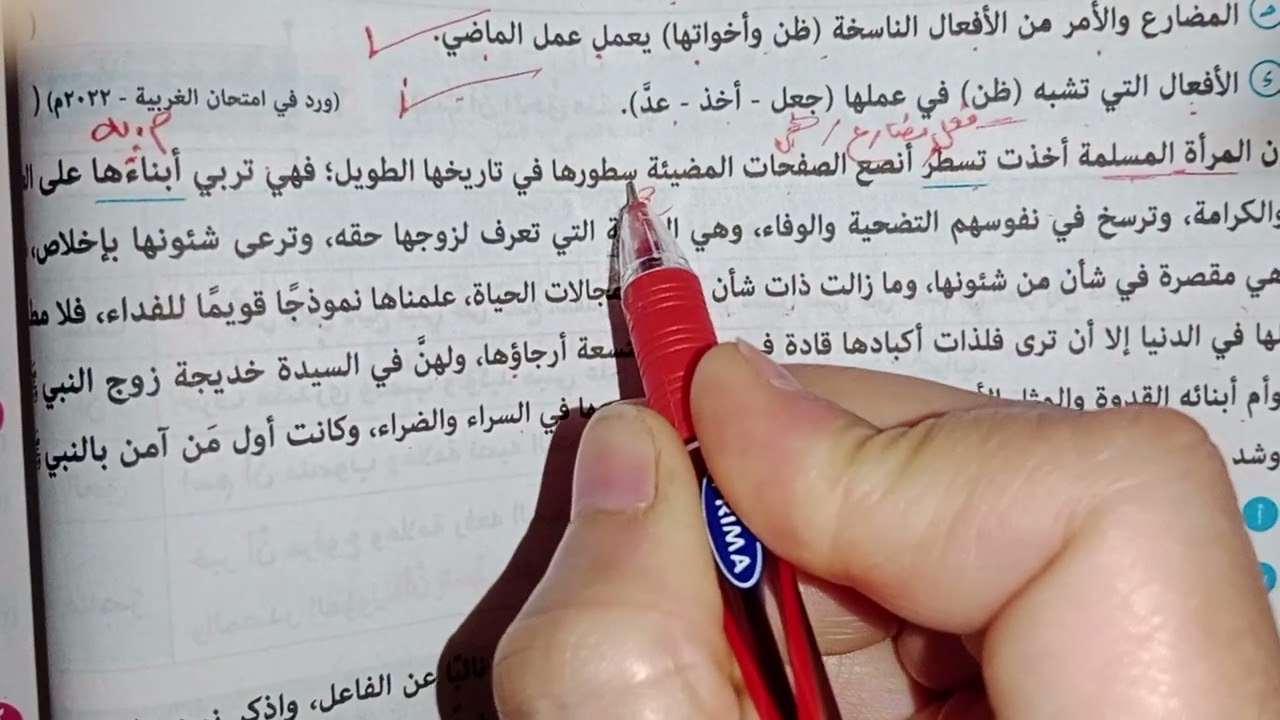 المضارع والأمر من الأفعال الناسخة (ظن وأخواتها) يعمل عمل الماضي.
الأفعال التي تشبه (ظن) في عملها (جعل - أخذ - عدَّ). (ورد في امتحان الغربية - ٢٠٢٢م) (
فعل مضارع
ن المرأة المسلمة أخذت تسطر أنصع الصفحات المضيئة سطورها في تاريخها الطويل؛ فهي تربي أبناءَها على
والكرامة، وترسخ في نفوسهم التضحية والوفاء، وهي التي تعرف لزوجها حقه، وترعى شئونها بإخلاص،
هي مقصرة في شأن من شئونها، وما زالت ذات شأن مجالات الحياة، علمناها نموذجًا قويمًا للفداء، فلا
لها في الدنيا إلا أن ترى فلذات أكبادها قادة أرجاؤها، ولهنَّ في السيدة خديجة زوج النبي
وأم أبنائه القدوة والمثل
وشد في السراء والضراء، وكانت أول مَن آمن بالنبي
أ
PRIMA
نائبًا عن الفاعل، واذكر